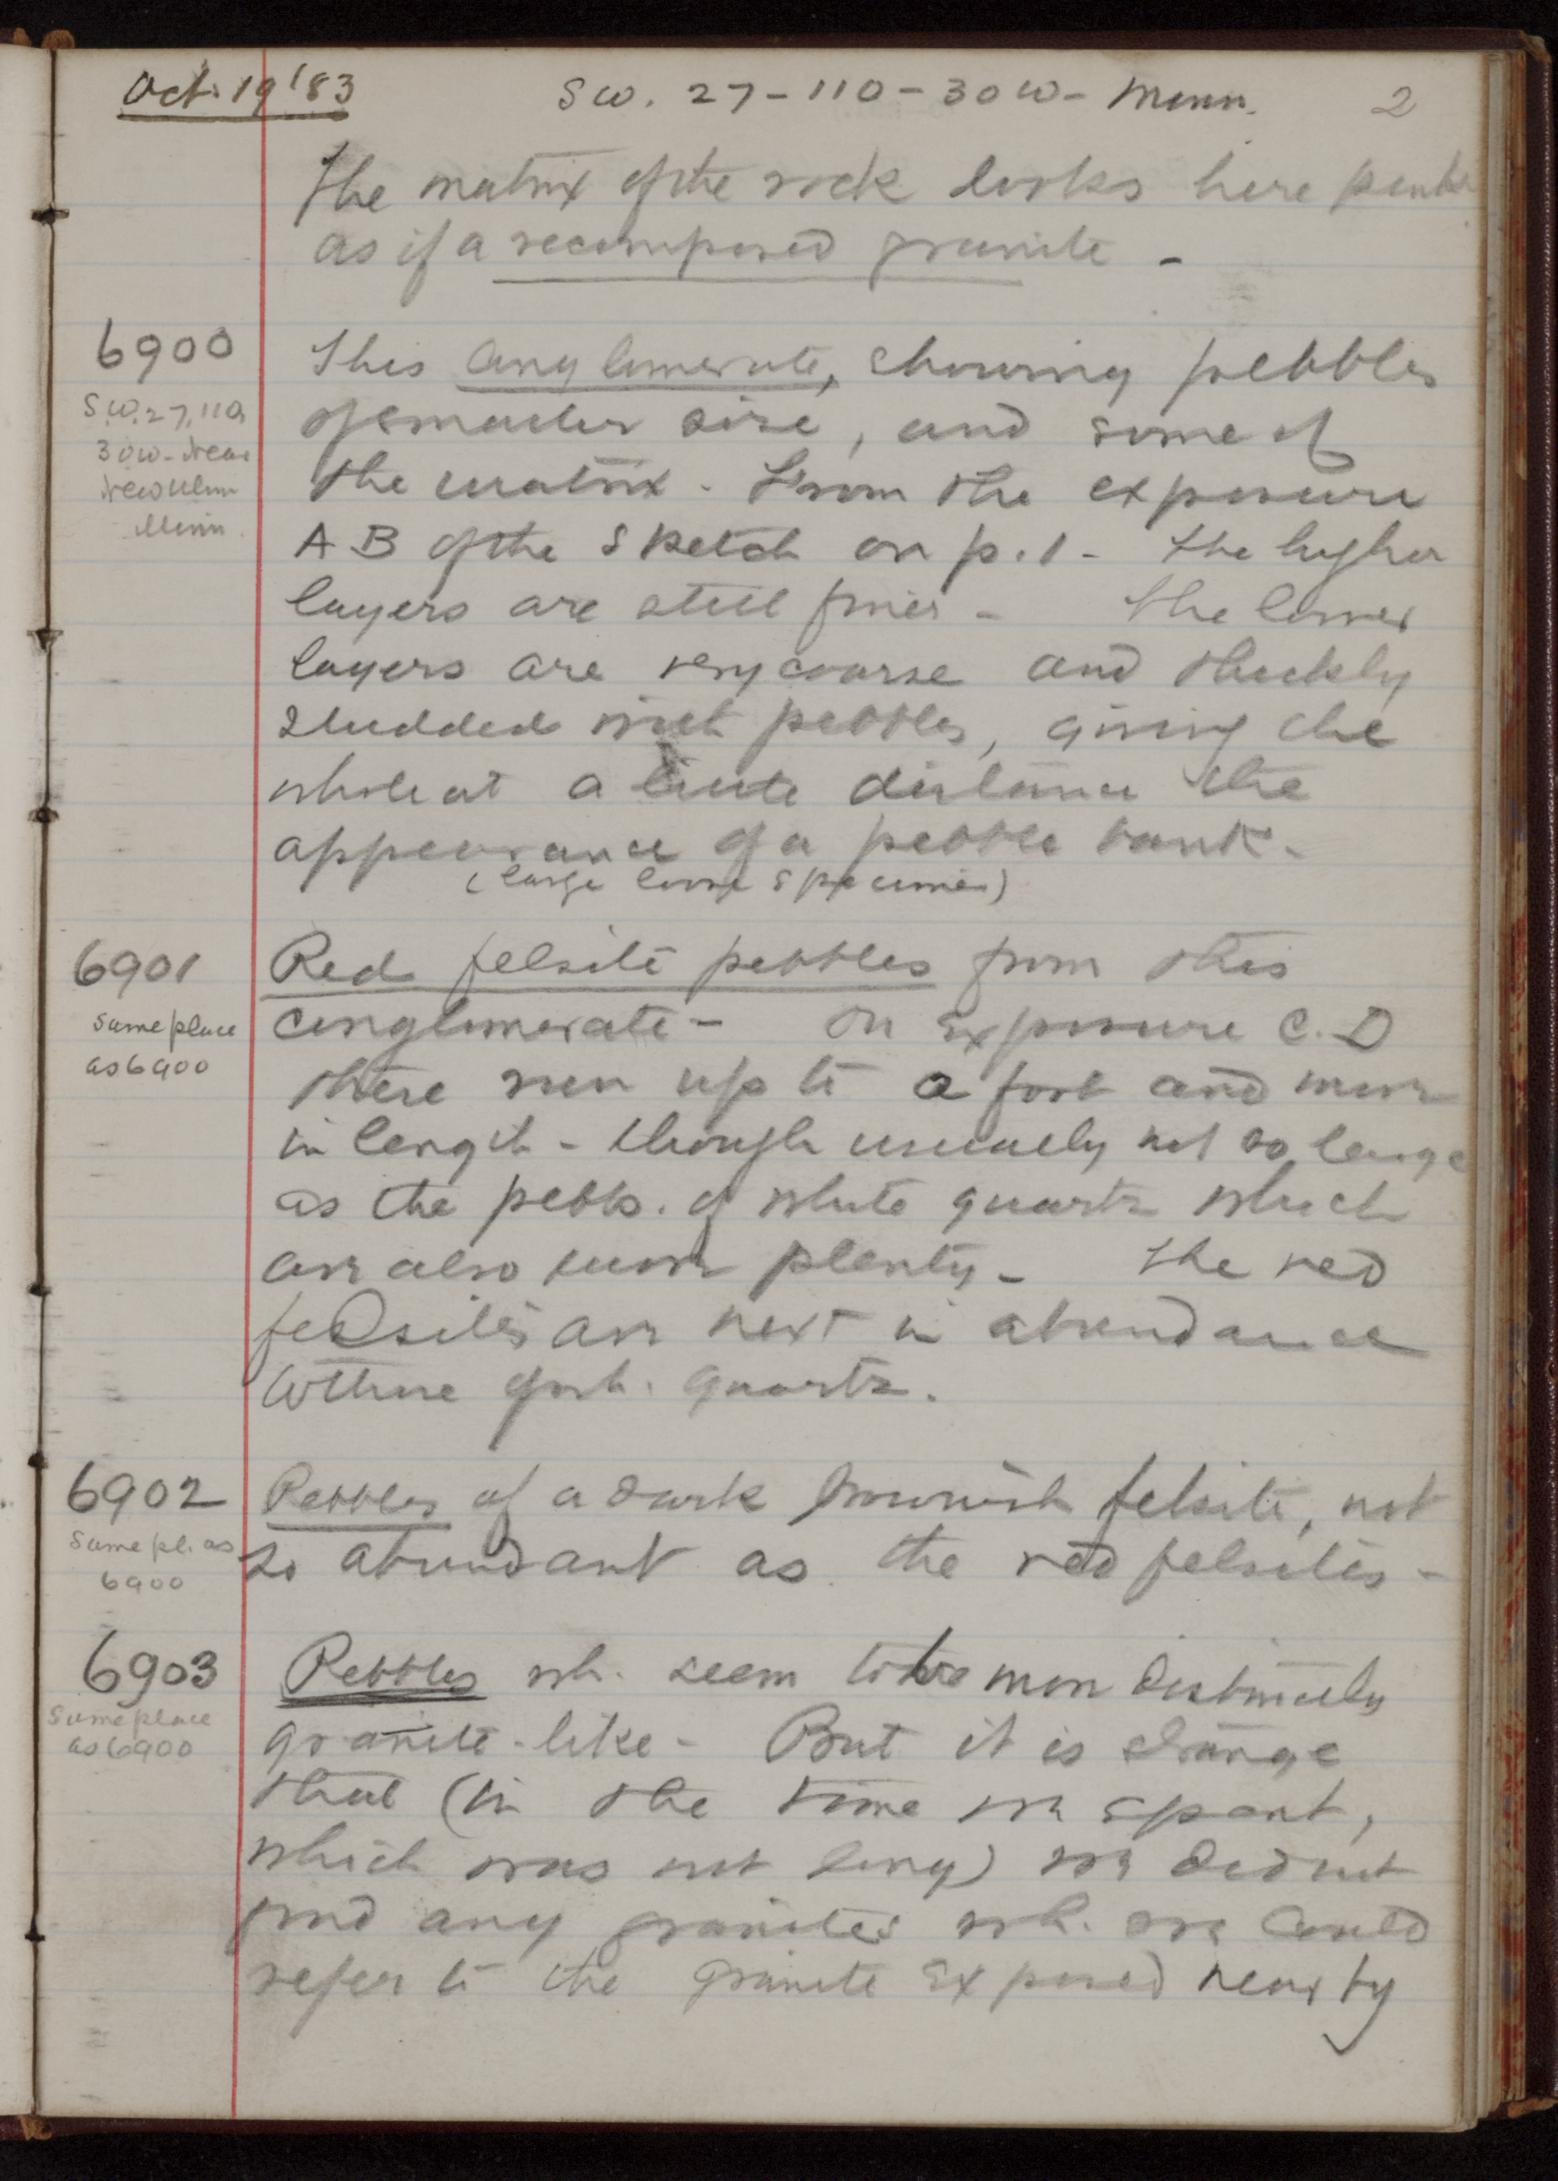 Oct. 19 '83
SW. 27-110-30W- Minn. 2
The matrix of the rock looks here
as if a recomposed granite -
6900
S.W. 27, 110,
30W- Near
New Ulm
Minn.
This conglomerate, showing pebbles
of smaller size, and some of
the matrix - From the exposure
A B of the Sketch on p. 1 - The higher
layers are still finer - The lower
layers are very coarse and thickly
studded with pebbles, giving the
whole at a little distance the
appearance of a pebble bank -
(large loose specimen)
6901
same place
as 6900
Red felsite pebbles from this
conglomerate - On exposure C. D
these run up to a foot and more
in length - though usually not so large
as the pebb. of white quartz which
are also more plenty - The red
felsites are next in abundance
to those of wh. quartz.
6902
Same pl. as
6900
Pebbles of a dark brownish felsite, not
so abundant as the red felsites -
6903
Same place
as 6900
Pebbles wh. seem to be more distinctly
granite-like - But it is strange
that (in the time we spent,
which was not long) we did not
find any granites wh. we could
refer to the granite exposed near by